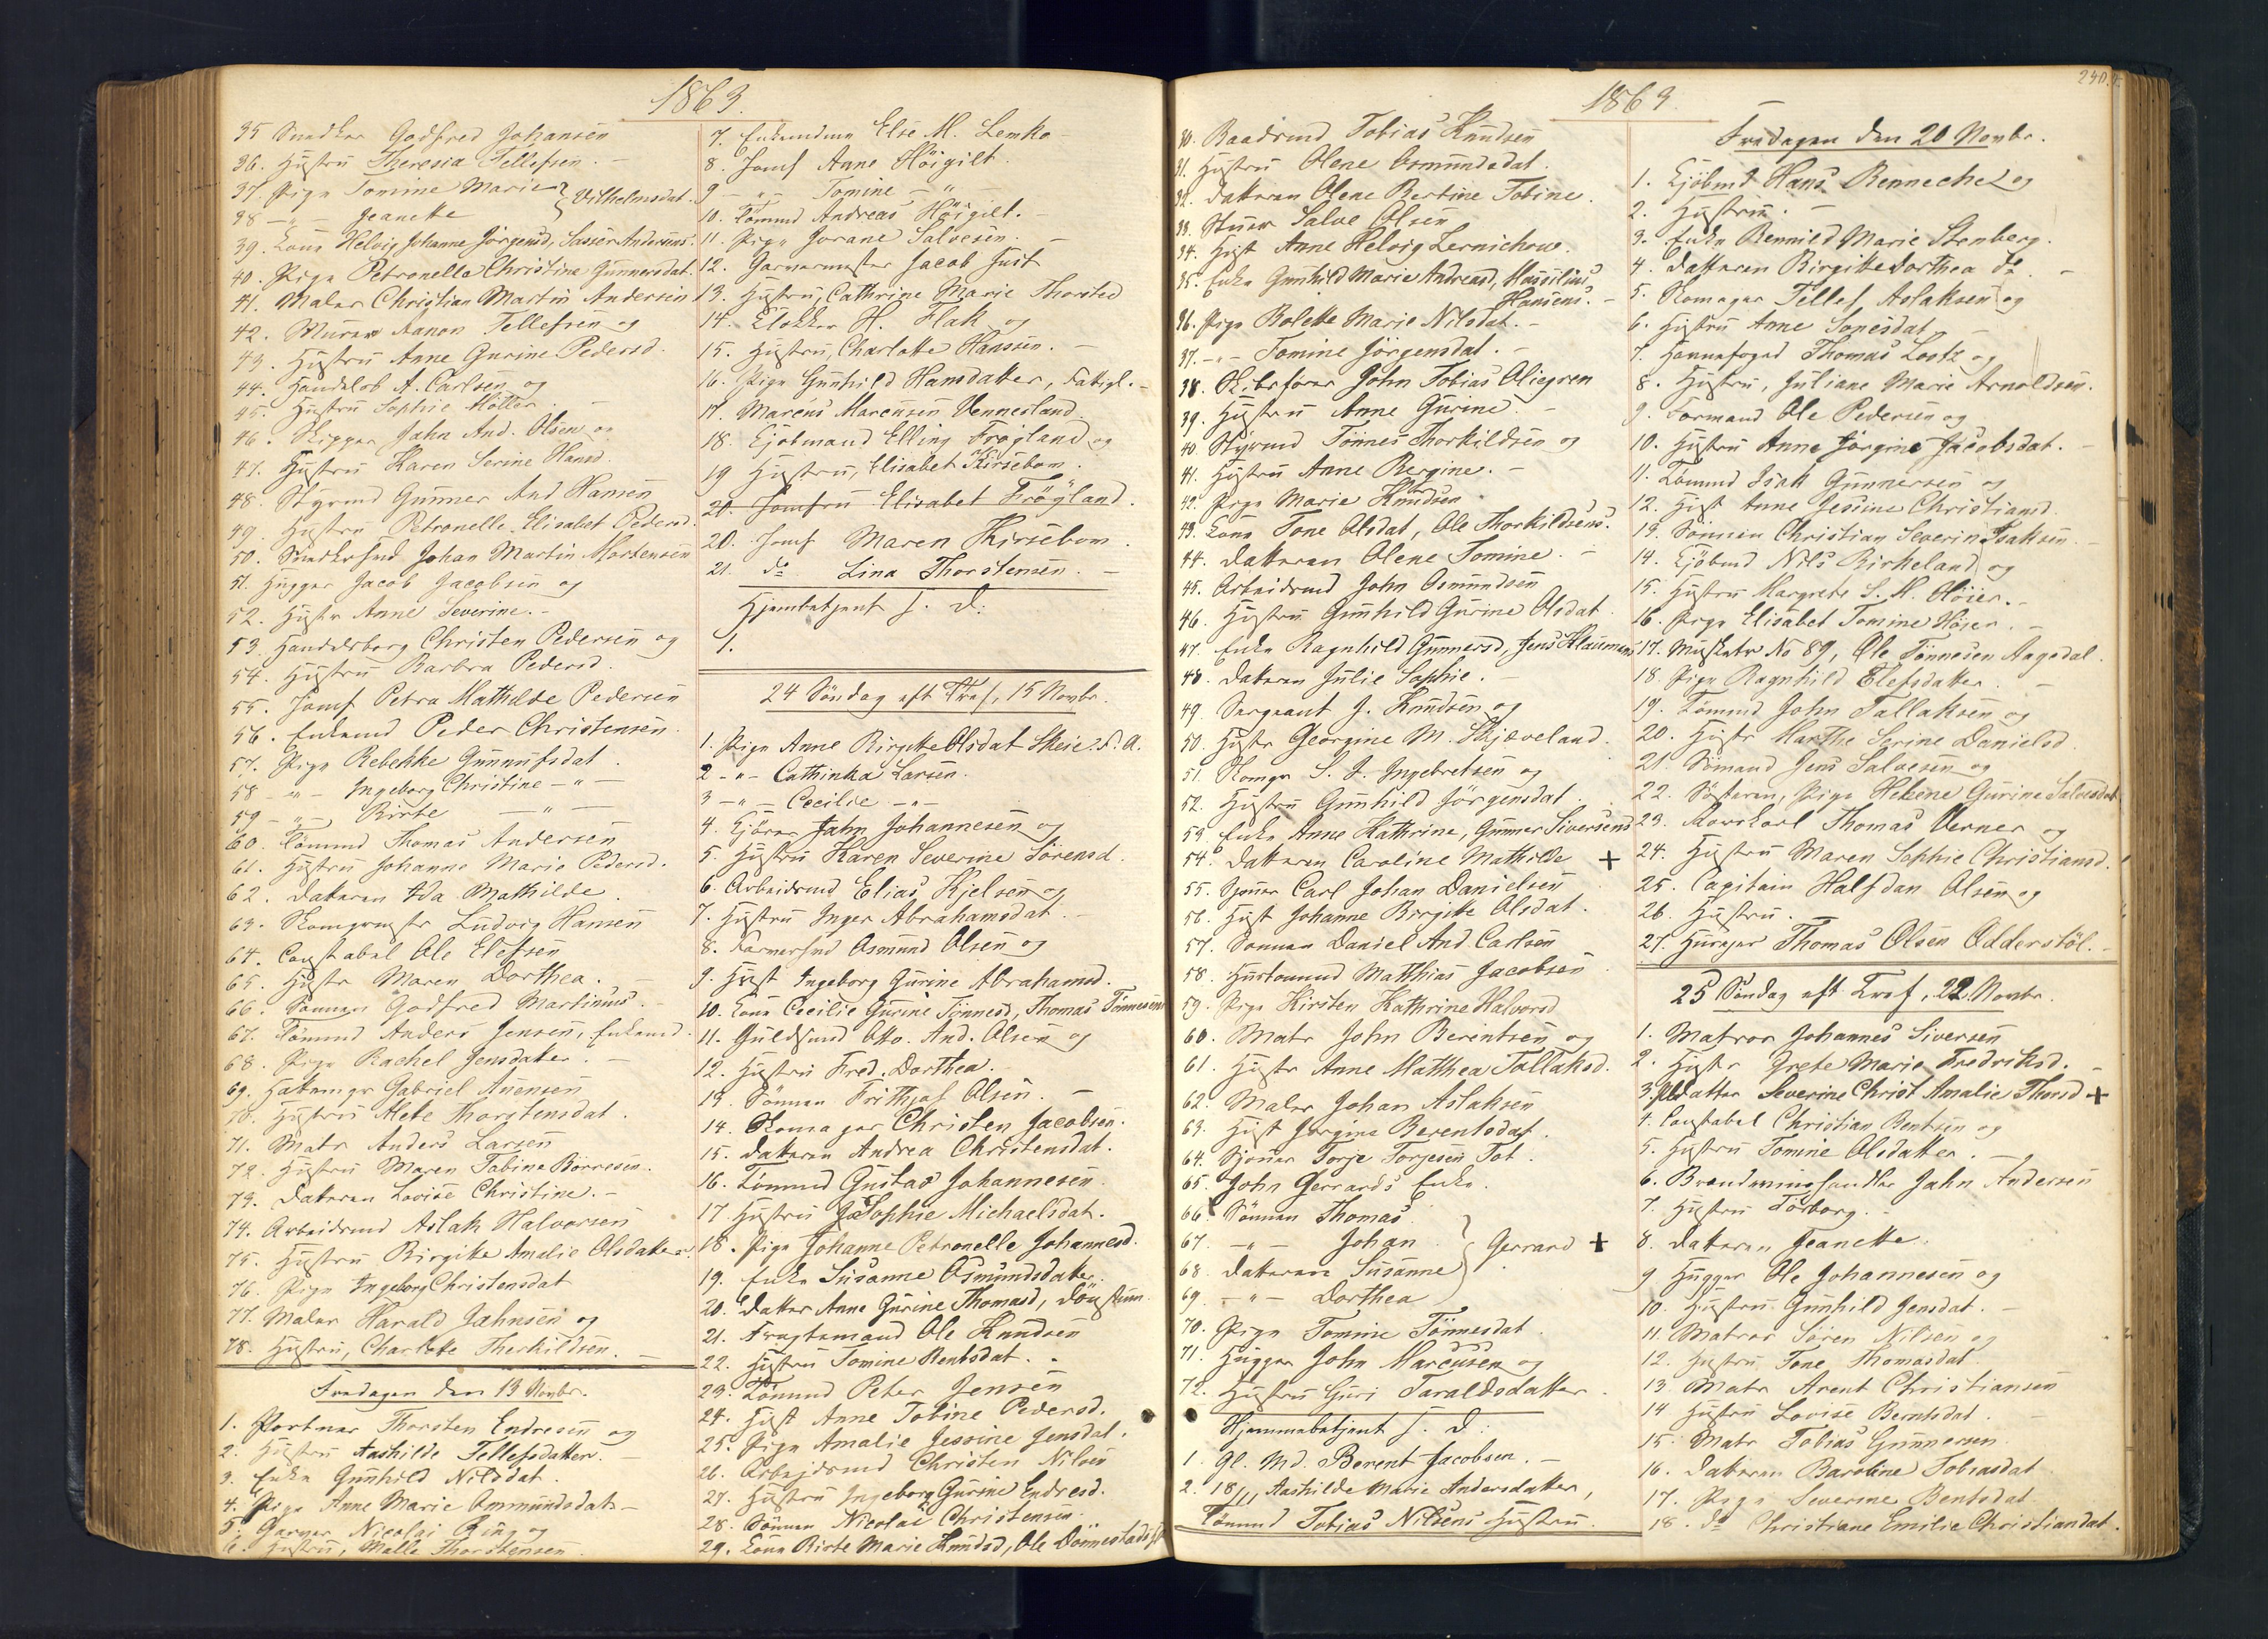 1863.
35 Snedker Godfred Johansen
36. Hustru Theresia Tellefsen. –
37. Pige Tomine Marie } Vilhelmsdat.
38 – " – Jeanette
39. Kone Helvig Johanne Jörgensd, Sasser Andersens.
40. Pige Petronella Christine Gunnersdat.
41. Maler Christian Martin Andersen
42. Murer Aanon Tellefsen og
43. Hustru Anne Gurine Pedersd.
44. Handelsb A. Carlsen og
45. Hustru Sophie Möller. –
46. Skipper Jahn And. Olsen og
47. Hustru Karen Serine Hansd.
48. Styrmd Gunner And Hansen
49. Hustru Petronelle Elisabet Pedersd.
50. Snedkersvd Johan Martin Mortensen
51. Hugger Jacob Jacobsen og
52. Hustr Anne Severine. –
53. Handelsborg Christen Pedersen og
54. Hustru Barbra Pedersd.
55. Jomf Petra Mathilde Pedersen
56. Enkemd Peder Christensen.
57. Pige Rebekke Gunnufsdat.
58 – " – Ingeborg Christine – " –
59 – " – Birte – " –
60. Tömmd Thomas Andersen
61. Hustru Johanne Marie Pedersd.
62. Datteren Ida Mathilde.
63. Skomgrmstr Ludvig Hansen
64. Constabel Ole Elefsen
65. Hustr Maren Dorthea. –
66. Sönnen Godfred Martinus. –
67. Tömmd Anders Jensen, Enkemd.
68. Pige Rachel Jensdatter. –
69. Hattemgr Gabriel Anensen
70. Hustru Alete Thorstensdat.
71. Matr Anders Larsen
72. Hustru Maren Tobine Börresen.
73. Datteren Lovise Christine. –
74. Arbeidsmd Aslak Halvorsen
75. Hustru Birgitte Amalie Olsdatter.
76. Pige Ingeborg Christensdat
77. Maler Harald Jahnsen og
78. Hustru, Charlotte Therkildsen. –
Fredagen den 13 Novbr.
1. Portner Thorsten Endresen og
2. Hustru Aashilde Tellefsdatter. –
3. Enke Gunhild Nilsdat.
4. Pige Anne Marie Ommundsdatr –
5. Garver Nicolai Ring og
6. Hustru, Malle Thorstensen.
7. Enkemdinn Else M. Lemko –
8. Jomf Anne Höigilt.
9 – " – Tomine – "
10. Tömmd Andreas Höigilt. –
11. Pige Jorane Salvesen. –
12. Garvermester Jacob Just
13. Hustru, Cathrine Marie Thorsted
14. Klokker H. Flak og
15. Hustru, Charlotte Hanssen. –
16. Pige Gunhild Hansdatter, Fattigl. –
17. Marcus Marcussen Vennesland.
18. Kjöbmand Elling Frögland og
19 Hustru, Elisabet Kirsebom.
20. Jomfru Elisabet Frögland.
20. Jomf Maren Kirsebom.
21. do Lina Thorstensen. –
Hjembetjent s. D:
1.
24 Söndag eft Tref, 15 Novbr.
1. Pige Anne Birgitte Olsdat Skeie. F. A.
2 – " – Cathinka Larsen.
3 – " – Cecilie – " –
4. Kjörer Jahn Johannesen og
5. Hustru Karen Severine Sörensd.
6. Arbeidsmd Elias Kjelsen og
7. Hustru Inger Abrahamsdat. –
8. Farversvd Osmund Olsen og
9. Hust Ingeborg Gurine Abrahamsd.
10. Kone Cecilie Gurine Tönnesd, Thomas Tönnesens
11. Guldsmd Otto. And. Olsen og
12. Hustru Fred. Dorthea.
13. Sönnen Frithjof Olsen. –
14. Skomager Christen Jacobsen.
15. Datteren Andrea Christensdat.
16. Tömmd Gustav Johannesen
17 Hustru Sophie Michaelsdat.
18. Pige Johanne Petronelle Johannesd.
19. Enke Susanne Osmundsdatter.
20. Datter Anne Gurine Thomasd,
21. Fragtemand Ole Knudsen
22. Hustru Tomine Bentsdat. –
23. Tömmd Peter Jensen
24. Hust Anne Tobine Pedersd.
25. Pige Amalie Jessine Jensdat.
26. Arbejdsmd Christen Nilsen
27. Hustru Ingeborg Gurine Endresd.
28. Sönnen Nicolai Christensen.
29. Kone Birte Marie Knudsd, Ole
1863
240.
30. Baadsmd Tobias Knudsen
31. Hustru Olene Osmundsdat.
32. Datteren Olene Bertine Tobine.
33. Murer Salve Olsen
34. Hust Anne Helvig Lernichow.
35. Enke Gunhild Marie Andreasd, Massilius
Hansens. –
36. Pige Bolette Marie Nilsdat. –
37. – " – Tomine Jörgensdat. –
38. Skibsförer John Tobias Oliegren
39. Hustru Anne Gurine. –
40. Styrmd Tönnes Thorkildsen og
41. Hustru Anne Bergine. –
42. Pige Marie Knudsen
43. Kone Tone Olsdat, Ole Thorkildsens.
44. Datteren Olene Tomine. –
45. Arbeidsmd John Osmundsen
46. Hustru Gunhild Gurine Olsdat.
47. Enke Ragnhild Gunnersd, Jens Klausmans
48. Datteren Julie Sophie. –
49. Sergeant J. Knudsen og
50. Hustr Georgine M. Skjæveland.
51. Skomgr S. J. Ingebretsen og
52. Hustru Gunhild Jörgensdat.
53. Enke Anne Kathrine, Gunner Siversens
54. Datteren Caroline Mathilde +
55. Sjouer Carl Johan Danielsen
56. Hust Johanne Birgitte Olsdat.
57. Sönnen Daniel And. Carlsen
58. Matthias Jacobsen
59. Pige Kirsten Kathrine Halvorsd
60. Matr John Berintsen og
61. Hustr Anne Matthea Tallaksd.
62. Maler Johan Aslaksen
63. Hust Jorgine Berentsdat.
64. Sjouer Torje Torjesen Tot.
65. John Gerrards Enke.
66. Sönnen Thomas } Gerrard +
67. – " – Johan
68. Datteren Susanne
69. – " – Dorthea
70. Pige Tomine Tönnesdat.
71. Hugger John Marcusen og
72. Hustru Guri Taraldsdatter.
Hjemmebetjent s. D:
1. Gl. Md. Berent Jacobsen. –
2. 18/11 Aashilde Marie Andersdatter,
Tömmd Tobias Nilsens Hustru.
Fredagen den 20 Novbr.
1. Kjöbmd Hans Bennechel og
2. Hustru. –
3. Enke Rennild Marie Stenberg.
4. Datteren Birgitte Dorthea do. –
5. Skomager Tellef Aslaksen og
6. Hustru Anne Sonesdat. –
7. Havnefoged Thomas Lootz og
8. Hustru, Juliane Marie Arnoldsen.
9. Formand Ole Pedersen og
10. Hustru Anne Jorgine Jacobsdat. –
11. Tömmd Isak Gunnersen og
12. Hust Anne Jessine Christiansd
13. Sönnen Christian Severin Isaksen. –
14. Kjöbmd Nils Birkeland og
15. Hustru Margrete S. M. Höier. –
16. Pige Elisabet Tomine Höier. –
17. Musketr No 89, Ole Tönnesen Aagedal.
18. Pige Ragnhild Elefsdatter. –
19. Tömmd John Tallaksen og
20. Hustr Marthe Serine Danielsd.
21. Sömand Jens Salvesen og
22. Sösteren, Pige Helene Gurine Salvesdat
23. Thomas Verner og
24. Hustru Maren Sophie Christiansd.
25. Capitain Halfdan Olsen og
26. Hustru. –
27. Thomas Olsen Odderstöl. –
25 Söndag eft Tref, 22. Novbr.
1. Matros Johannes Siversen
2. Hustr Grete Marie Fredriksd. –
3. Pldatter Severine Christ Amalie Thorsd +
4. Constabel Christian Bentsen og
5. Hustru Tomine Olsdatter. –
6. Brændevinshandler Jahn Andersen
7. Hustru Torborg. –
8. Datteren Jeanette.
9 Hugger Ole Johannesen og
10. Hustru Gunhild Jensdat. –
11. Matros Sören Nilsen og
12. Hustru Tone Thomasdat.
13. Matr Arent Christiansen
14 Hustru Lovise Berntsdat. –
15. Matr Tobias Gunnersen
16. Datteren Baroline Tobiasdat
17. Pige Severine Bentsdat
18. do Christiane Emilie Christiandat.